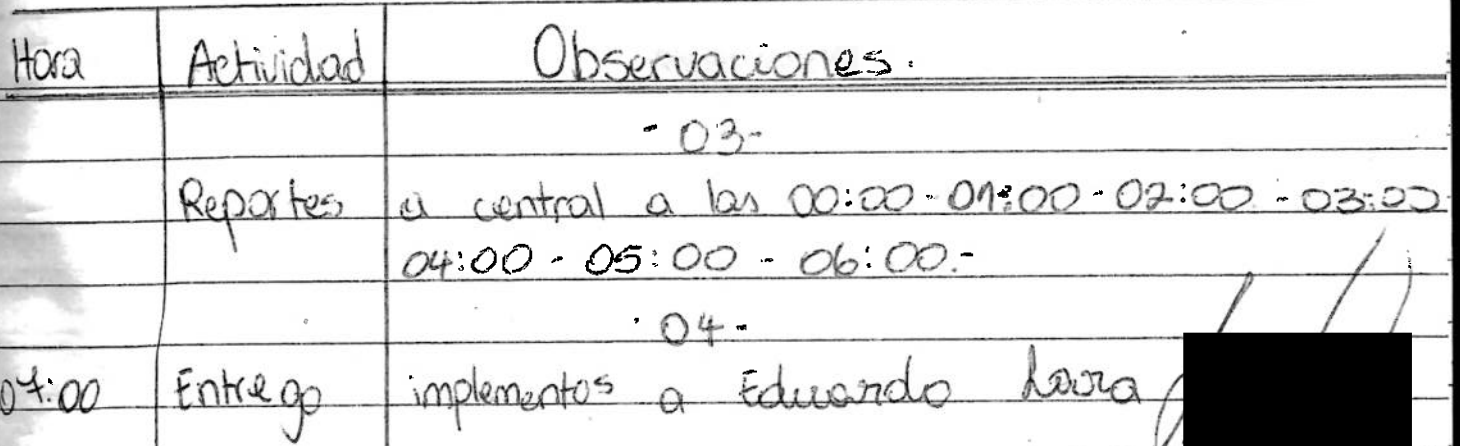 Hora Actividad Observaciones.
- 03-
Reportes a central a las 00:00-01:00-02:00-03:00
04:00 - 05:00 - 06:00.-
- 04-
07:00 Entrego implementos a Eduardo Lara